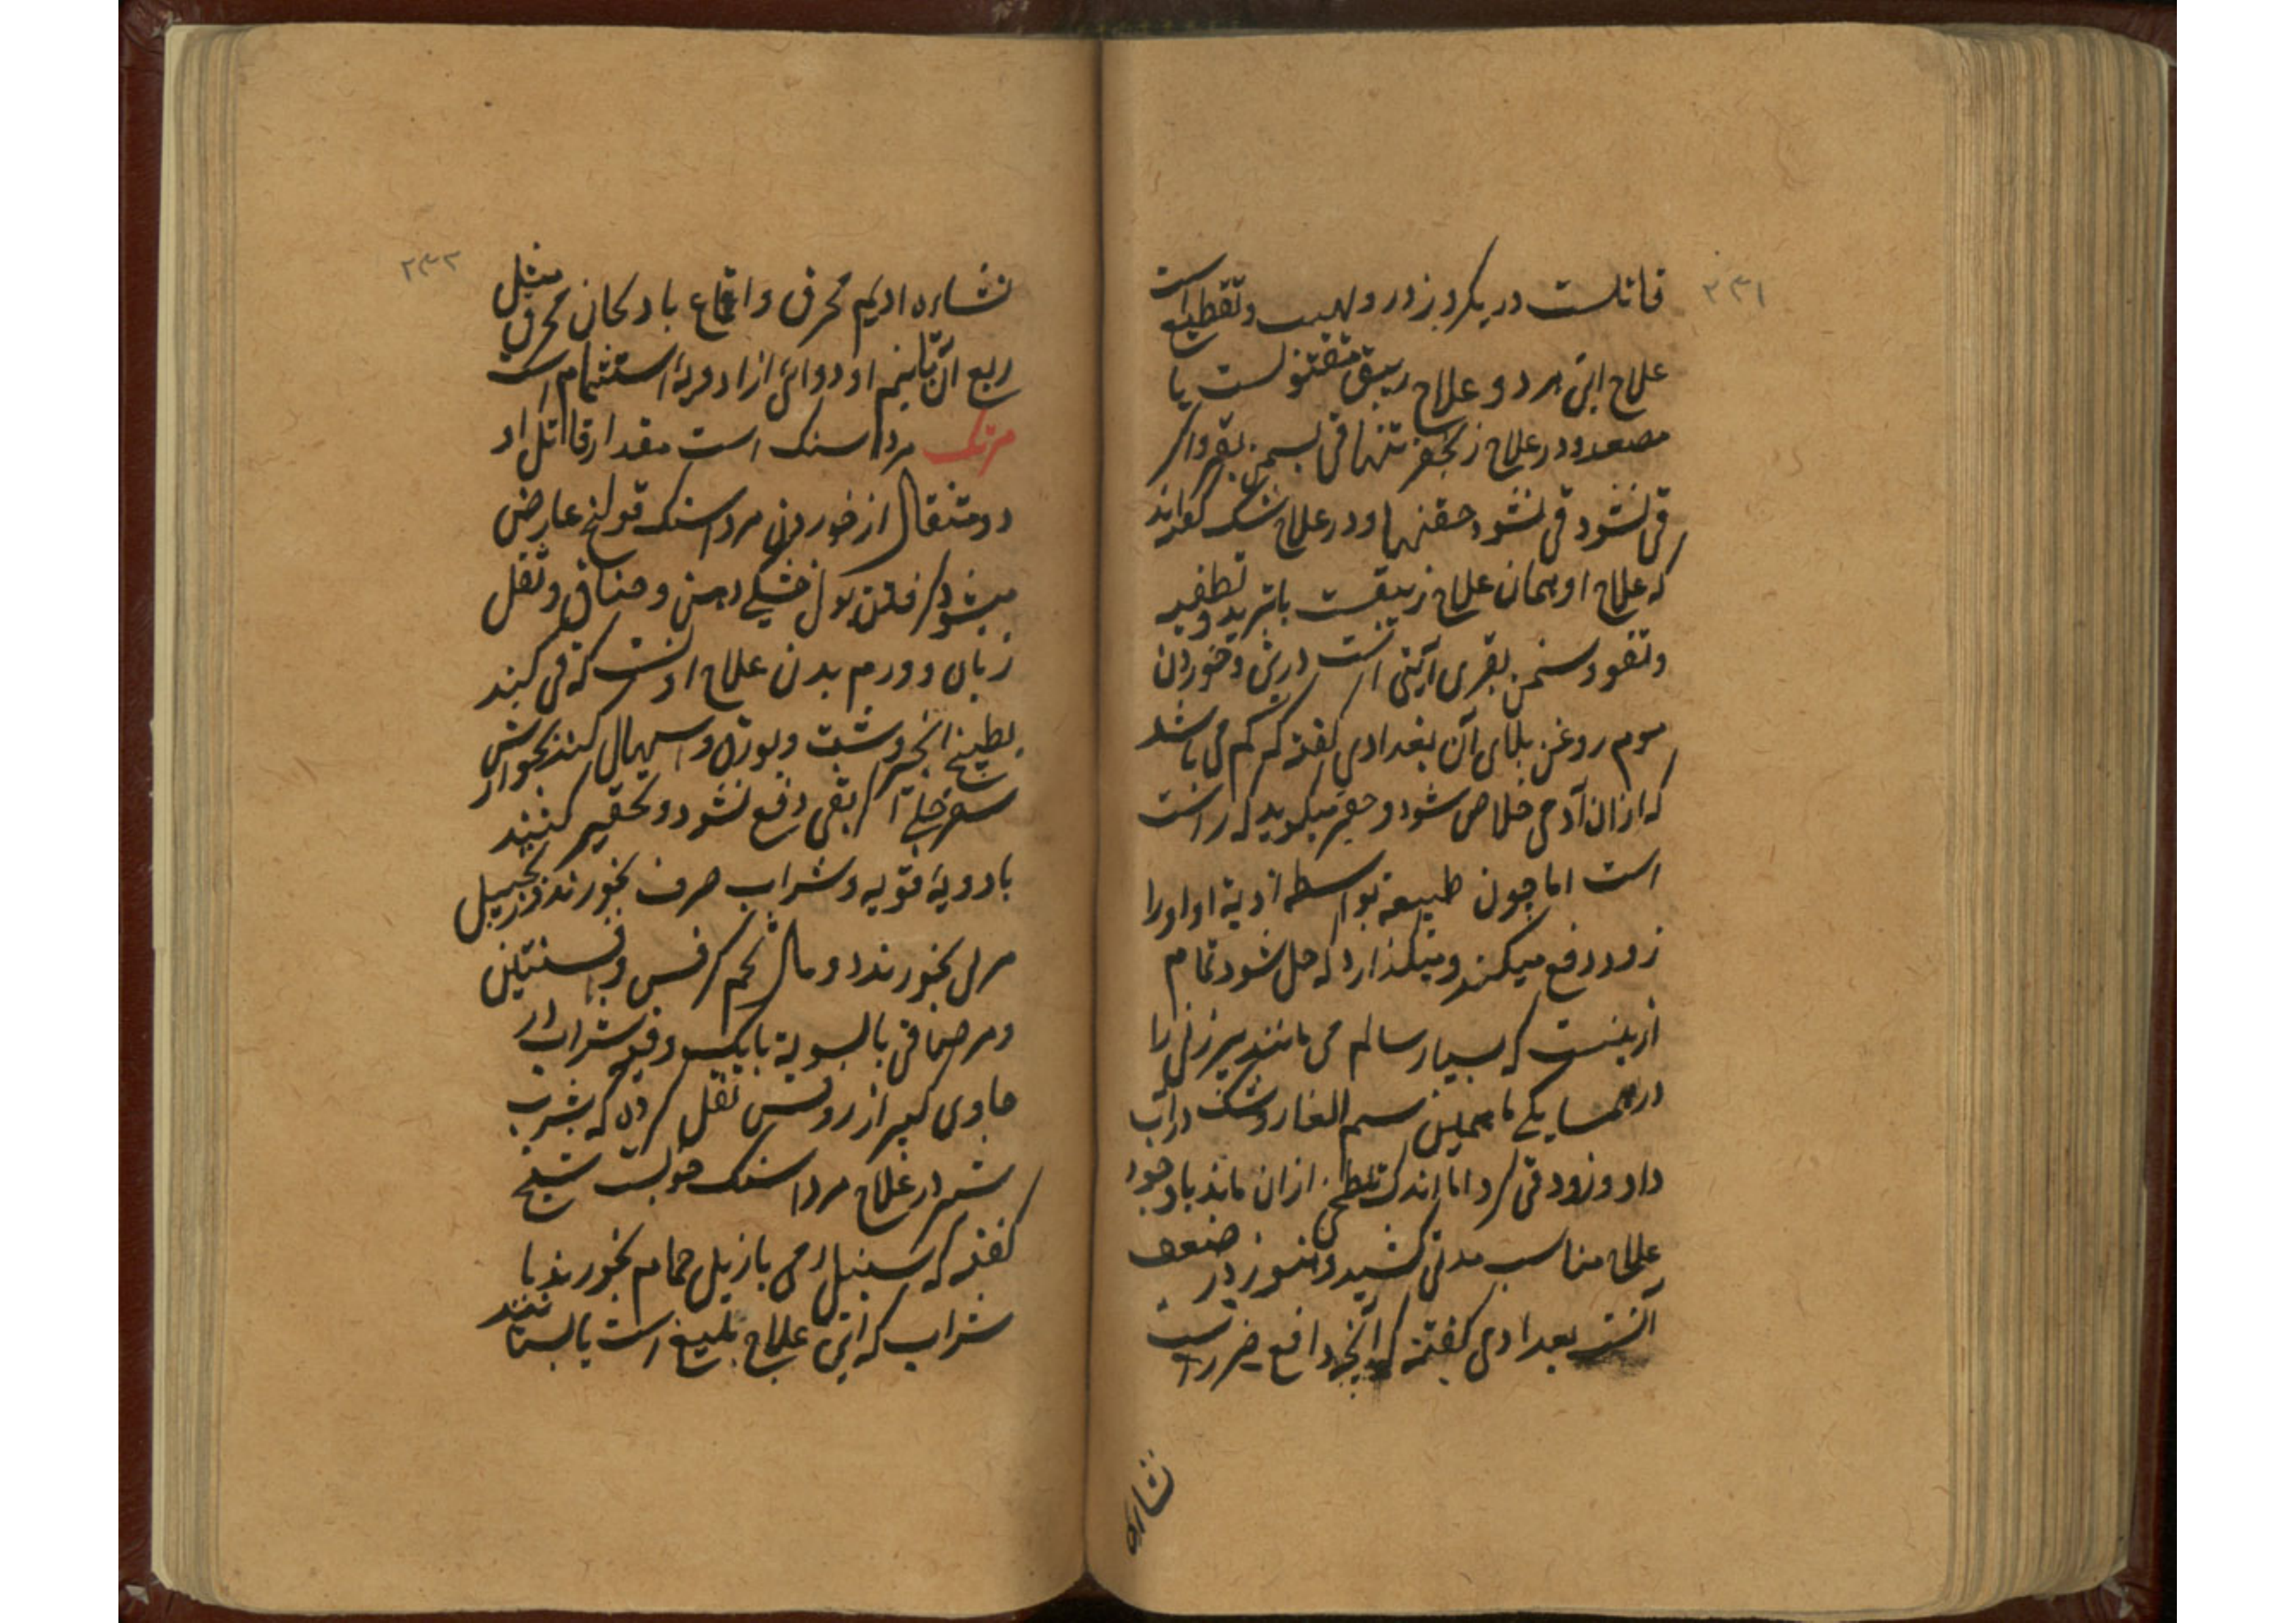 ٢٣١
قاتلست در یکروز درو لهیب و تقطیع است
علاج این هر دو علاج زیبق مقتولست یا
مصعد و در علاج زنجفر تنها قی بسمن بقر و اگر
قی نشود قی نشود حقنها و در علاج شک گفته‌اند
که علاج او همان علاج زیبقست با تبرید و تطفیه
و سمن بقری درین و خوردن
موم روغن بلمای آن بغدادی گفته که کم می باشد
که ازان آدمی خلاص شود و حقیر میگوید که راست
است اما چون طبیعة بواسطه اذیة او اورا
زود دفع میکند و نمیگذارد که حل شود تمام
ازینست که بسیار سالم می مانند پیرزنی را
در همسایگی ما سم الفار و شک در آب
داد و زود قی کرد اما اندک ازان ماند با وجود
علاج مناسب مدتی کشید و هنوز در ضعف
آنست بغدادی گفته که آنچه دافع ضرر است
نشاره
٢٣٢
نشاره ادیم محرق و اقماع بادنجان محرق مثل
ربع آن تا نیم او دوائی از ادویهٔ استشمام است
مرتک مرداسنک است مقدار قاتل او
دو مثقال از خوردن مرداسنک قولنج عارض
میشود و گرفتن بول خشکی دهن و خناق و ثقل
زبان و ورم بدن علاج او آنست که قی کنند
بطبیخ انجیر و شبت و بورق و اسهال کنند بجوارش
سفرجلی اگر بقی دفع نشود و تحقیر کنند
بادویهٔ قویه و شراب صرف بخورند و زنجبیل
مربی بخورند دو مال تخم کرفس و افسنتین
و مرصافی بالسویة با یکسو دقیه شراب در
حاوی کبیر از روفس نقل کرده که شرب
شیر در علاج مرداسنک خوبست شیخ
گفته که سنبل رومی با زبل حمام بخورند با
شراب که این علاج بلیغ است یا بستانند